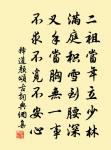 二祖當年立少林
滿庭積雪到腰深
叉手當胸無一事
不求不覓不安心
釋道顏頌古詞典網集